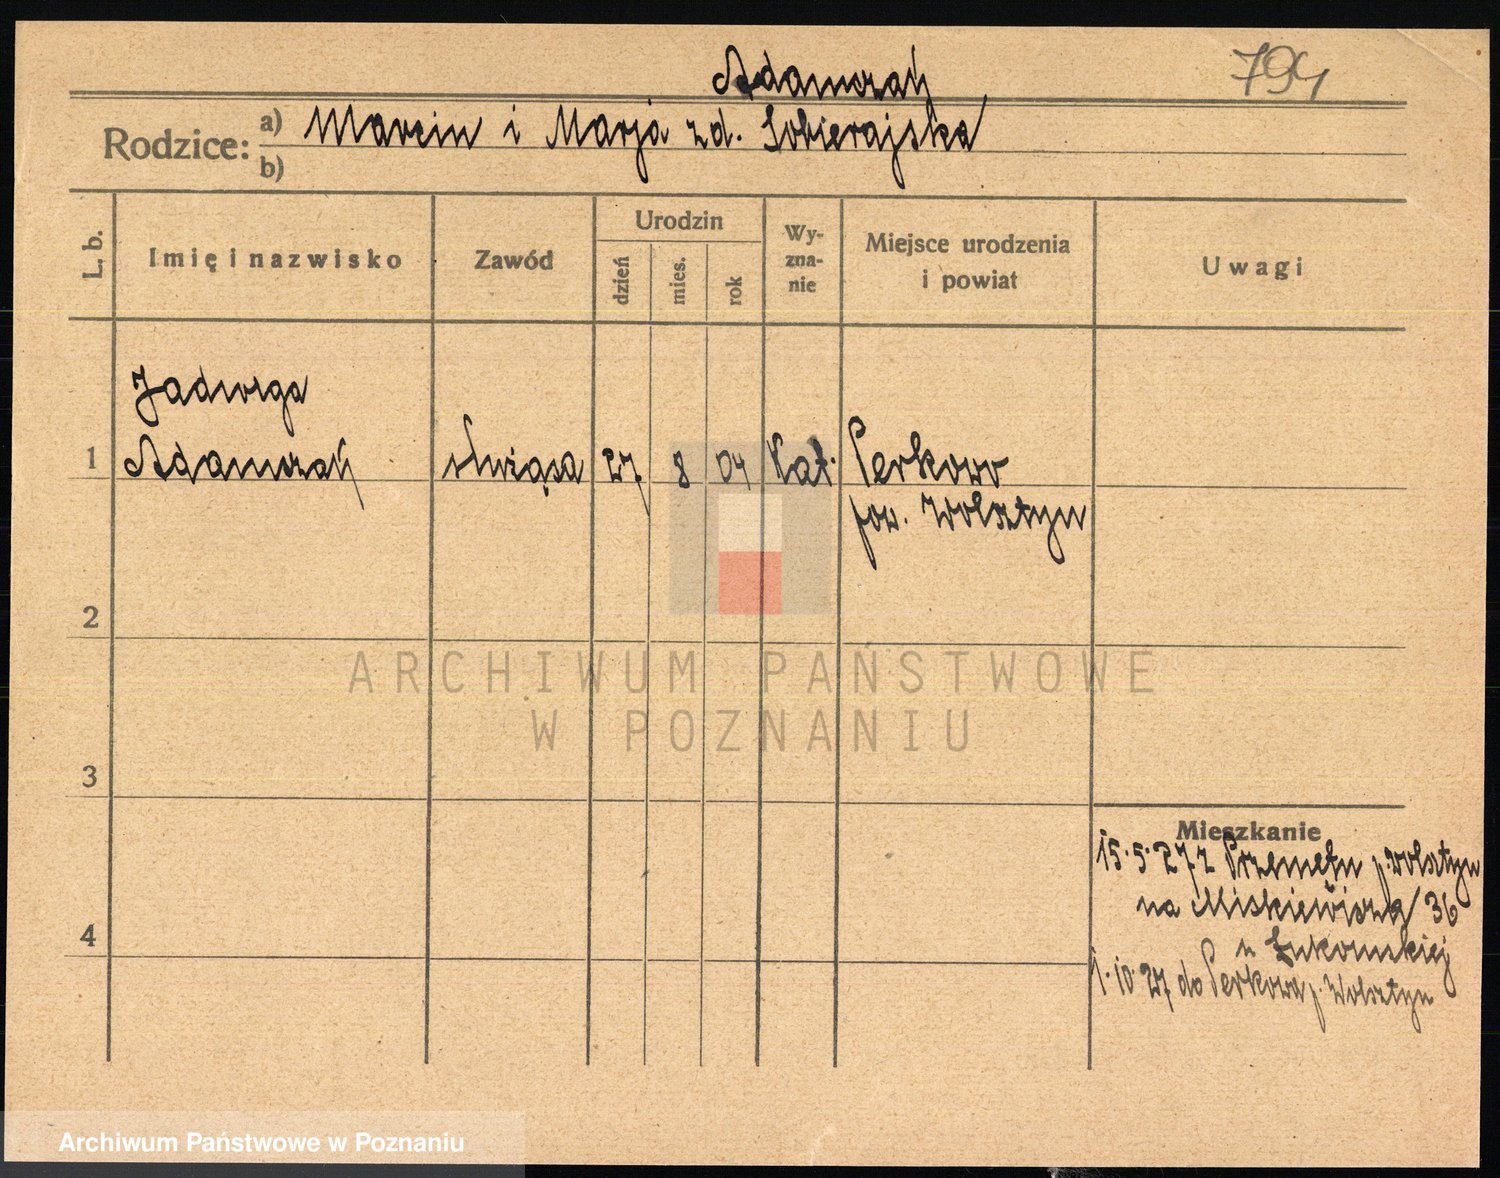 Adamczak
794
Rodzice: a) Marcin i Marja zd. Sobierajska
b)
L. b.
Imię i nazwisko
Zawód
Urodzin
dzień
mies.
rok
Wy-
zna-
nie
Miejsce urodzenia
i powiat
Uwagi
Jadwiga
1 Adamczak służąca 27 8 04 Kat. Perkowo
pow. Wolsztyn
2
3
4
Mieszkanie
15.5.27 z Przemętu p. Wolsztyn
na 36
u
1.10.27 do Perkowa p. Wolsztyn
ARCHIWUM PAŃSTWOWE
W POZNANIU
Archiwum Państwowe w Poznaniu